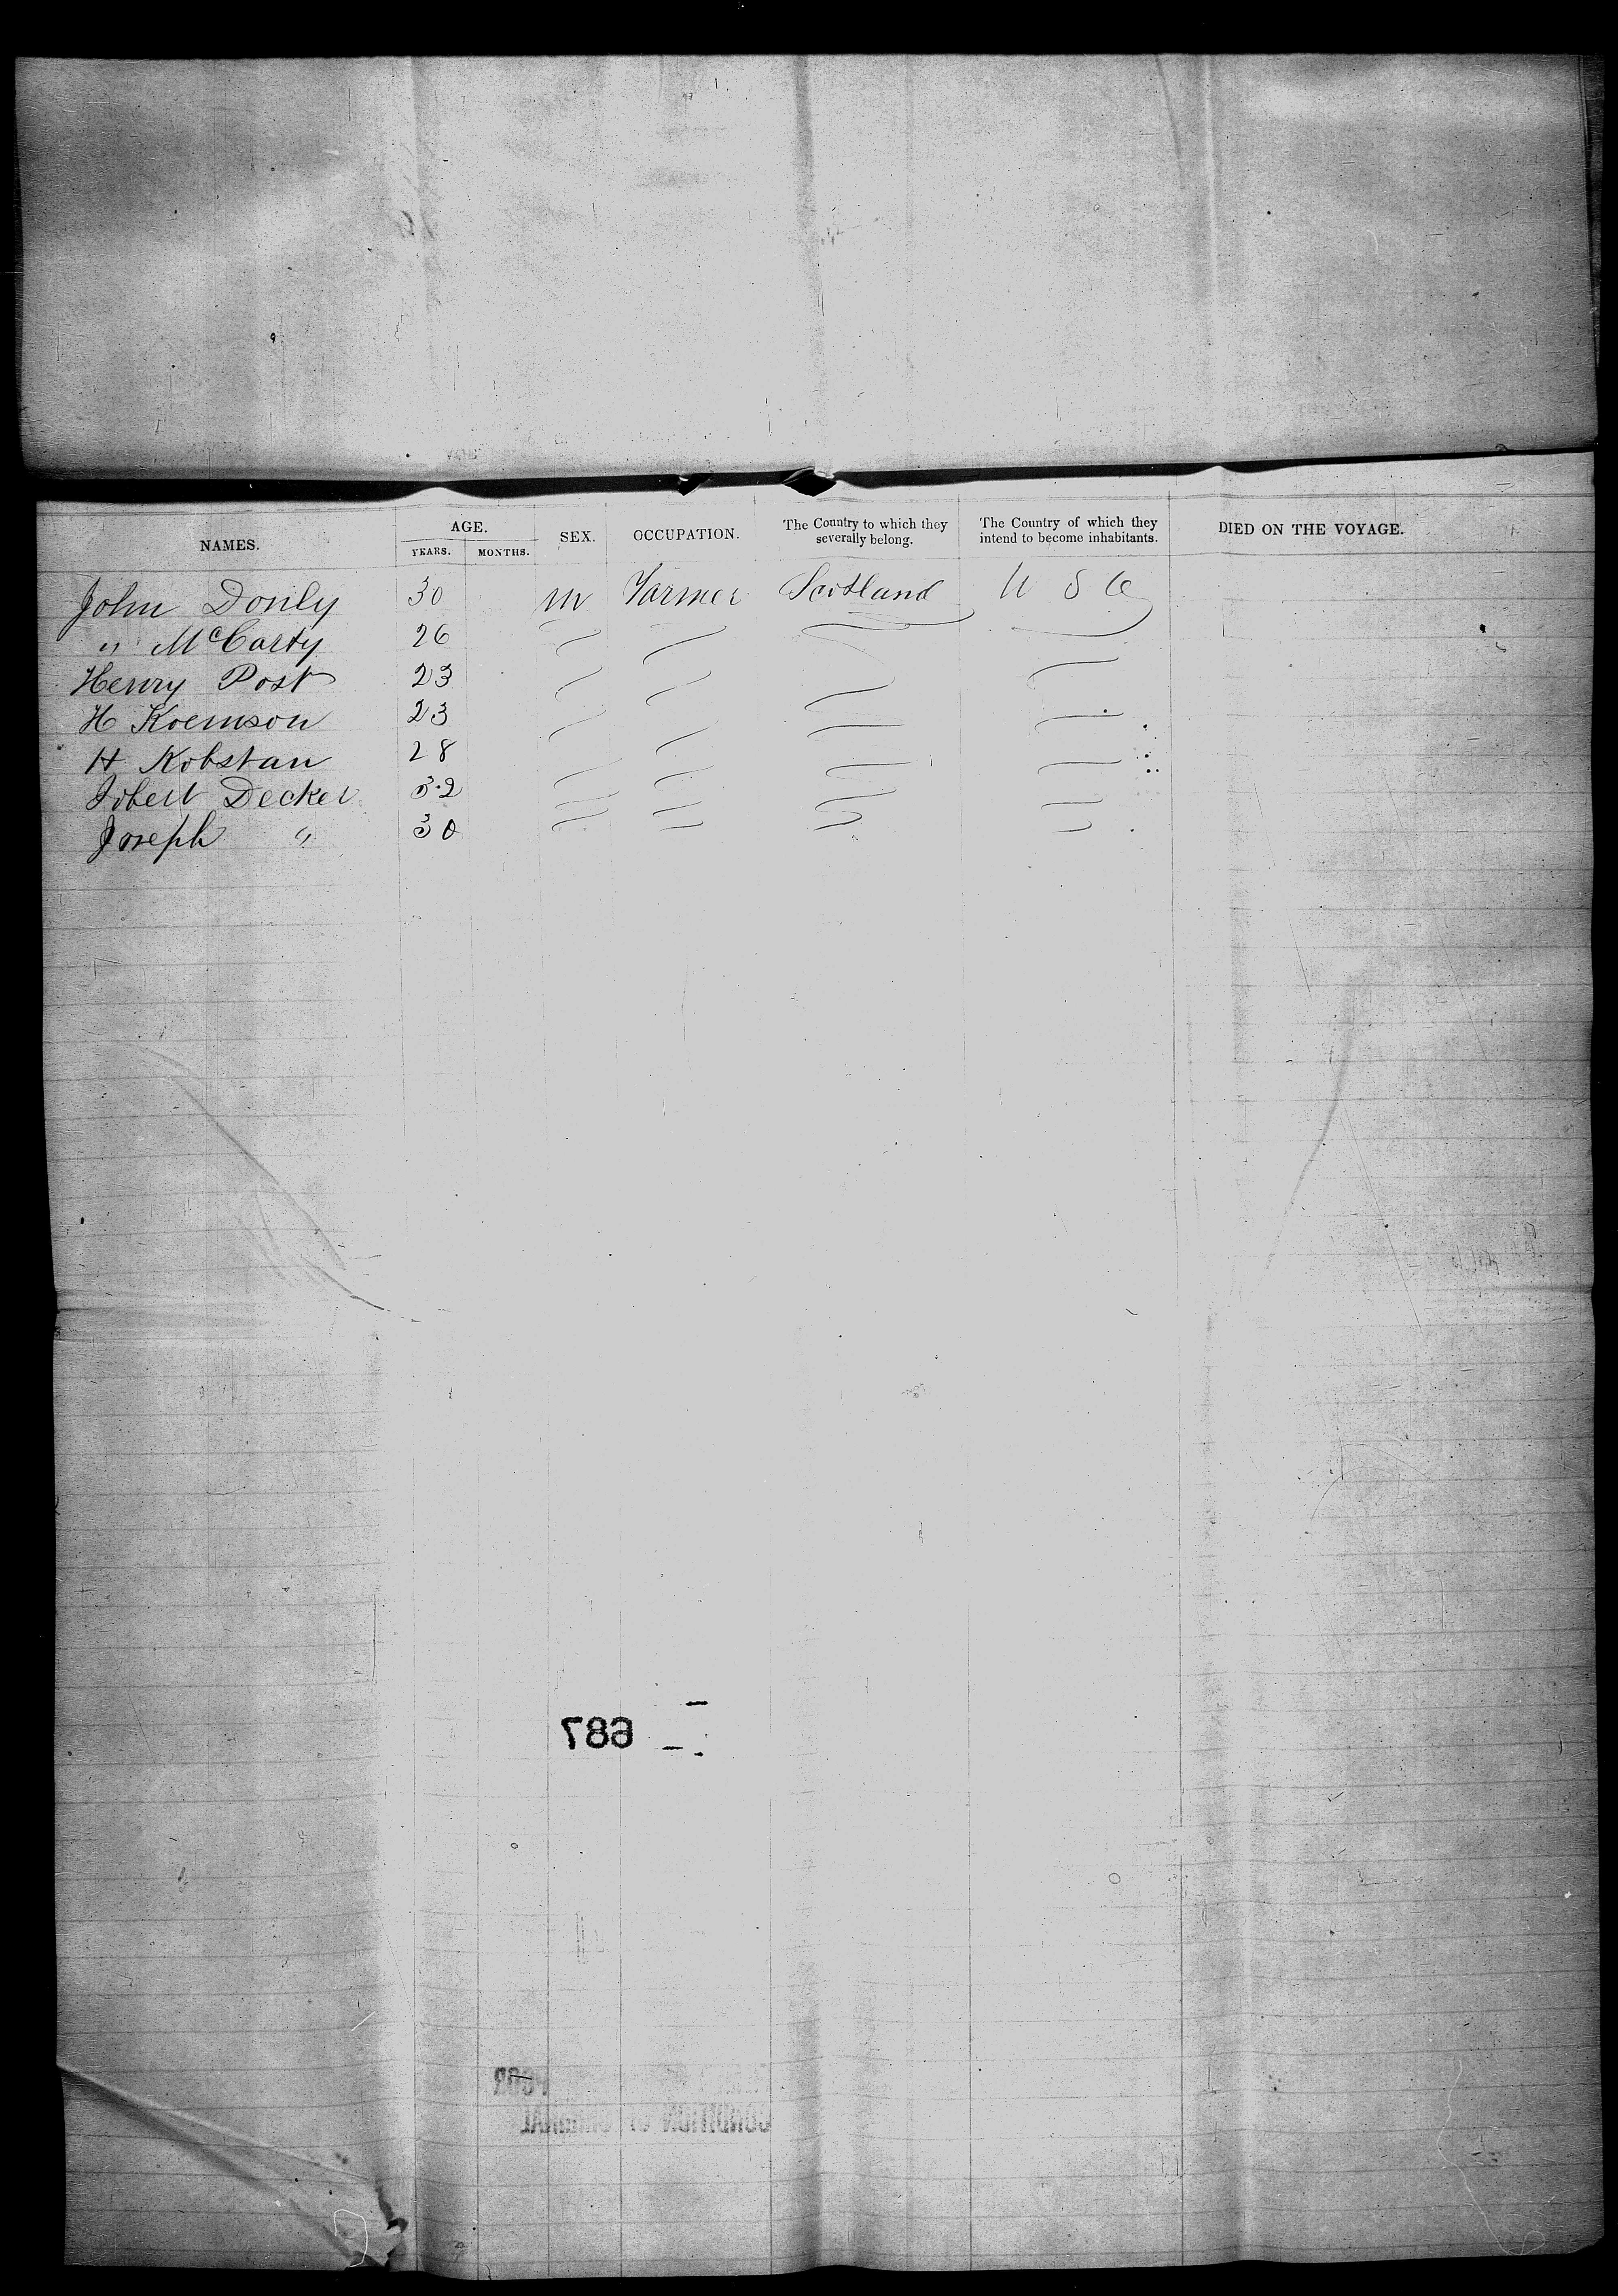 NAMES. AGE. YEARS. MONTHS. SEX. OCCUPATION. The Country to which they severally belong. The Country of which they intend to become inhabitants. DIED ON THE VOYAGE.
John Donly 30 m Farmer Scotland U S A
" McCarty 26
Henry Post 23
H Koemson 23
H Kobstan 28
Robert Decker 32
Joseph " 30
687
POOR
CONDITION OF ORIGINAL